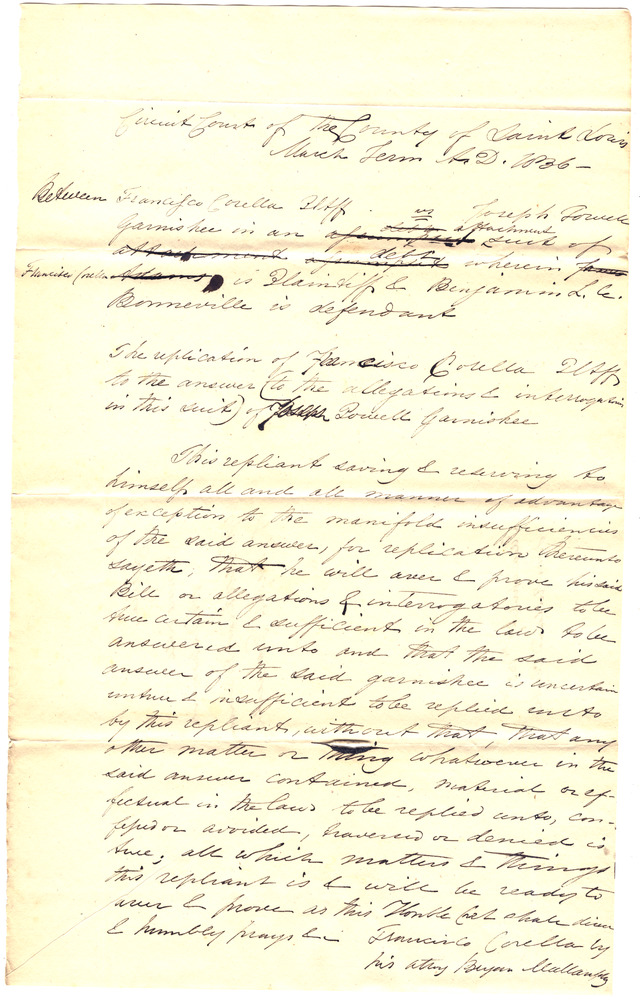 Circuit Court of the County of Saint Louis
March Term A.D. 1836 –
Between Francisco Corella Pltff. vs Joseph Powell
Garnishee in an attachment suit of
attachment debt wherein
Francisco Corella Adams, is Plaintiff & Benjamin L. E.
Bonneville is defendant
The replication of Francisco Corella Pltff
to the answer (to the allegations & interrogatories
in this suit) of Joseph Powell Garnishee
This repliant saving & reserving to
himself all and all manner of advantage
of exception to the manifold insufficiencies
of the said answer, for replication thereunto
sayeth, that he will aver & prove his said
Bill or allegations & interrogatories to be
true certain & sufficient in the law to be
answered unto and that the said
answer of the said garnishee is uncertain
untrue & insufficient to be replied unto
by this repliant, without that, that any
other matter or thing whatsoever in the
said answer contained, material or ef-
fectual in the law to be replied unto, con-
fessed or avoided, traversed or denied is
true; all which matters & things
this repliant is & will be ready to
aver & prove as this Honble Crt shall direct
& humbly prays &c Francisco Corella by
his atty Bryan Mullanphy